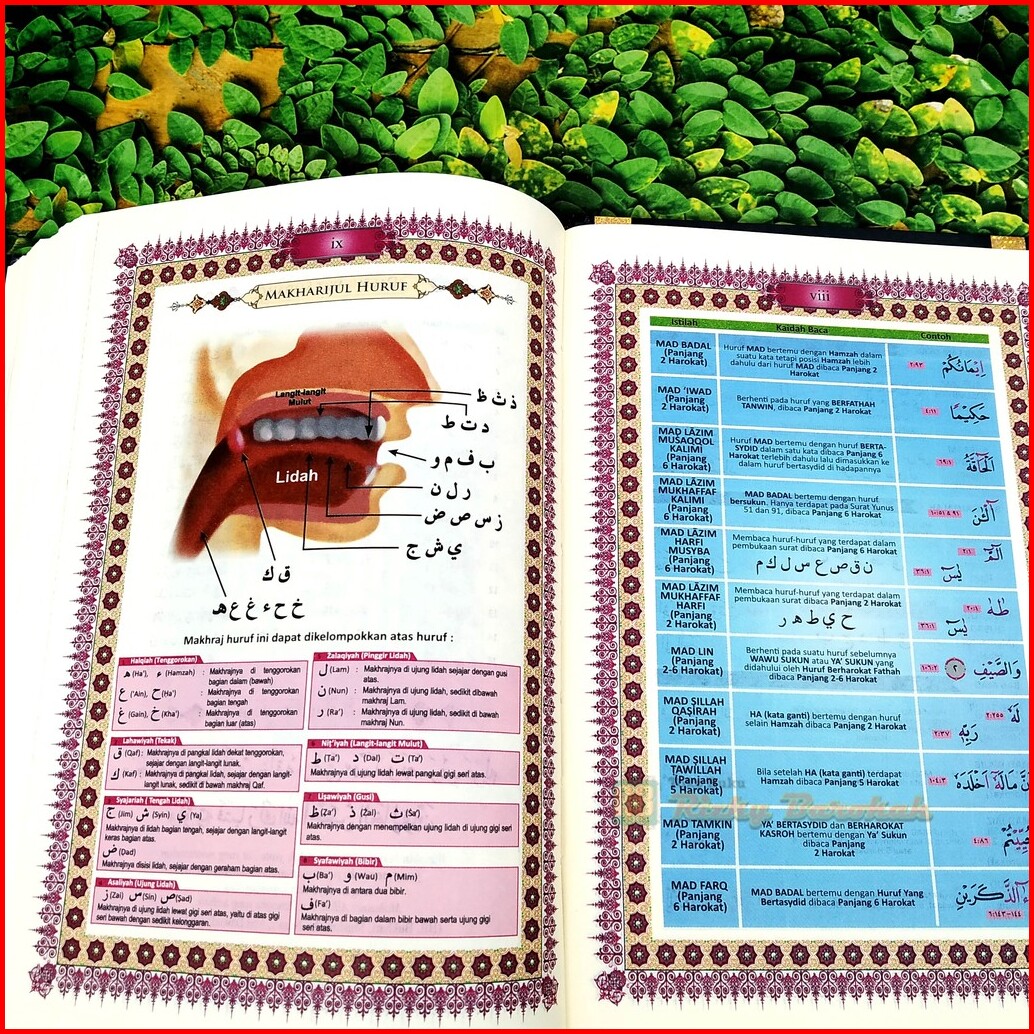 ix
MAKHARIJUL HURUF
Langit-langit
Mulut
Lidah
ظ ث ذ
د ت ط
ب ف م و
ر ل ن
ز س ص ض
ي ش ج
ق ك
خ ح ء غ ع ھ
Makhraj huruf ini dapat dikelompokkan atas huruf :
Halqiah (Tenggorokan)
ھ (Ha'), ء (Hamzah) : Makhrajnya di tenggorokan
bagian dalam (bawah)
ع ('Ain), ح (Ha') : Makhrajnya di tenggorokan
bagian tengah
غ (Gain), خ (Kha') : Makhrajnya di tenggorokan
bagian luar (atas)
Lahawiyah (Tekak)
ق (Qaf) : Makhrajnya di pangkal lidah dekat tenggorokan,
sejajar dengan langit-langit lunak.
ك (Kaf) : Makhrajnya di pangkal lidah, sejajar dengan langit-
langit lunak, sedikit di bawah makhraj Qaf.
Syajariah ( Tengah Lidah)
ج (Jim) ش (Syin) ي (Ya)
Makhrajnya di lidah bagian tengah, sejajar dengan langit-langit
keras bagian atas.
ض (Dad)
Makhrajnya disisi lidah, sejajar dengan geraham bagian atas.
Asaliyah (Ujung Lidah)
ز (Zai) س (Sin) ص (Sad)
Makhrajnya di ujung lidah lewat gigi seri atas, yaitu di atas gigi
seri bawah dengan sedikit kelonggaran.
Zalaqiyah (Pinggir Lidah)
ل (Lam) : Makhrajnya di ujung lidah sejajar dengan gusi
atas.
ن (Nun) : Makhrajnya di ujung lidah, sedikit dibawah
makhraj Lam.
ر (Ra') : Makhrajnya di ujung lidah, sedikit di bawah
makhraj Nun.
Niṭ'iyah (Langit-langit Mulut)
ط (Ta') د (Dal) ت (Ta')
Makhrajnya di ujung lidah lewat pangkal gigi seri atas.
Liṡawiyah (Gusi)
ظ (Za') ذ (Żal) ث (Ṡa')
Makhrajnya dengan menempelkan ujung lidah di ujung gigi seri
atas.
Syafawiyah (Bibir)
ب (Ba') و (Wau) م (Mim)
Makhrajnya di antara dua bibir.
ف (Fa')
Makhrajnya di bagian dalam bibir bawah serta ujung gigi
seri atas.
viii
Istilah Kaidah Baca Contoh
MAD BADAL
(Panjang
2 Harokat)
Huruf MAD bertemu dengan Hamzah dalam
suatu kata tetapi posisi Hamzah lebih
dahulu dari huruf MAD dibaca Panjang 2
Harokat
اِيْمَانُكُمْ ٢:٩٣
MAD 'IWAD
(Panjang
2 Harokat)
Berhenti pada huruf yang BERFATHAH
TANWIN, dibaca Panjang 2 Harokat
حَكِيْمًا ٤:١١
MAD LÂZIM
MUSAQQOL
KALIMI
(Panjang
6 Harokat)
Huruf MAD bertemu dengan huruf BERTA-
SYDID dalam satu kata dibaca Panjang 6
Harokat terlebih dahulu lalu dimasukkan ke
dalam huruf bertasydid di hadapannya
اَلْحَآقَّةُ ٦٩:١
MAD LÂZIM
MUKHAFFAF
KALIMI
(Panjang
6 Harokat)
MAD BADAL bertemu dengan huruf
bersukun. Hanya terdapat pada Surat Yunus
51 dan 91, dibaca Panjang 6 Harokat
آلْـٰٔنَ ١٠:٥١ & ٩١
MAD LÂZIM
HARFI
MUSYBA
(Panjang
6 Harokat)
Membaca huruf-huruf yang terdapat dalam
pembukaan surat dibaca Panjang 6 Harokat
ن ق ص ع س ل ك م
الٓمّٓ ٢:١
يٰسٓ ٣٦:١
MAD LÂZIM
MUKHAFFAF
HARFI
(Panjang
2 Harokat)
Membaca huruf-huruf yang terdapat dalam
pembukaan surat dibaca Panjang 2 Harokat
ح ي ط ھ ر
طٰهٰ ٢٠:١
يٰسٓ ٣٦:١
MAD LIN
(Panjang
2-6 Harokat)
Berhenti pada suatu huruf sebelumnya
WAWU SUKUN atau YA' SUKUN yang
didahului oleh Huruf Berharokat Fathah
dibaca Panjang 2-6 Harokat
وَالصَّيْفِ ٢ ١٠٦:٢
MAD ṢILLAH
QAṢIRAH
(Panjang
2 Harokat)
HA (kata ganti) bertemu dengan huruf
selain Hamzah dibaca Panjang 2 Harokat
لَهٗ ٢:٢٥٥
رَبِّهٖ ٢:٣٧
MAD ṢILLAH
ṬAWILLAH
(Panjang
5 Harokat)
Bila setelah HA (kata ganti) terdapat
Hamzah dibaca Panjang 5 Harokat
مَالَهٗٓ اَخْلَدَهٗ ١٠٤:٣
MAD TAMKIN
(Panjang
2 Harokat)
YA' BERTASYDID dan BERHAROKAT
KASROH bertemu dengan Ya' Sukun
dibaca Panjang
2 Harokat
٤:٨٦
MAD FARQ
(Panjang
6 Harokat)
MAD BADAL bertemu dengan Huruf Yang
Bertasydid dibaca Panjang 6 Harokat
ءٰٓالذَّكَرَيْنِ
٦:١٤٣-١٤٤